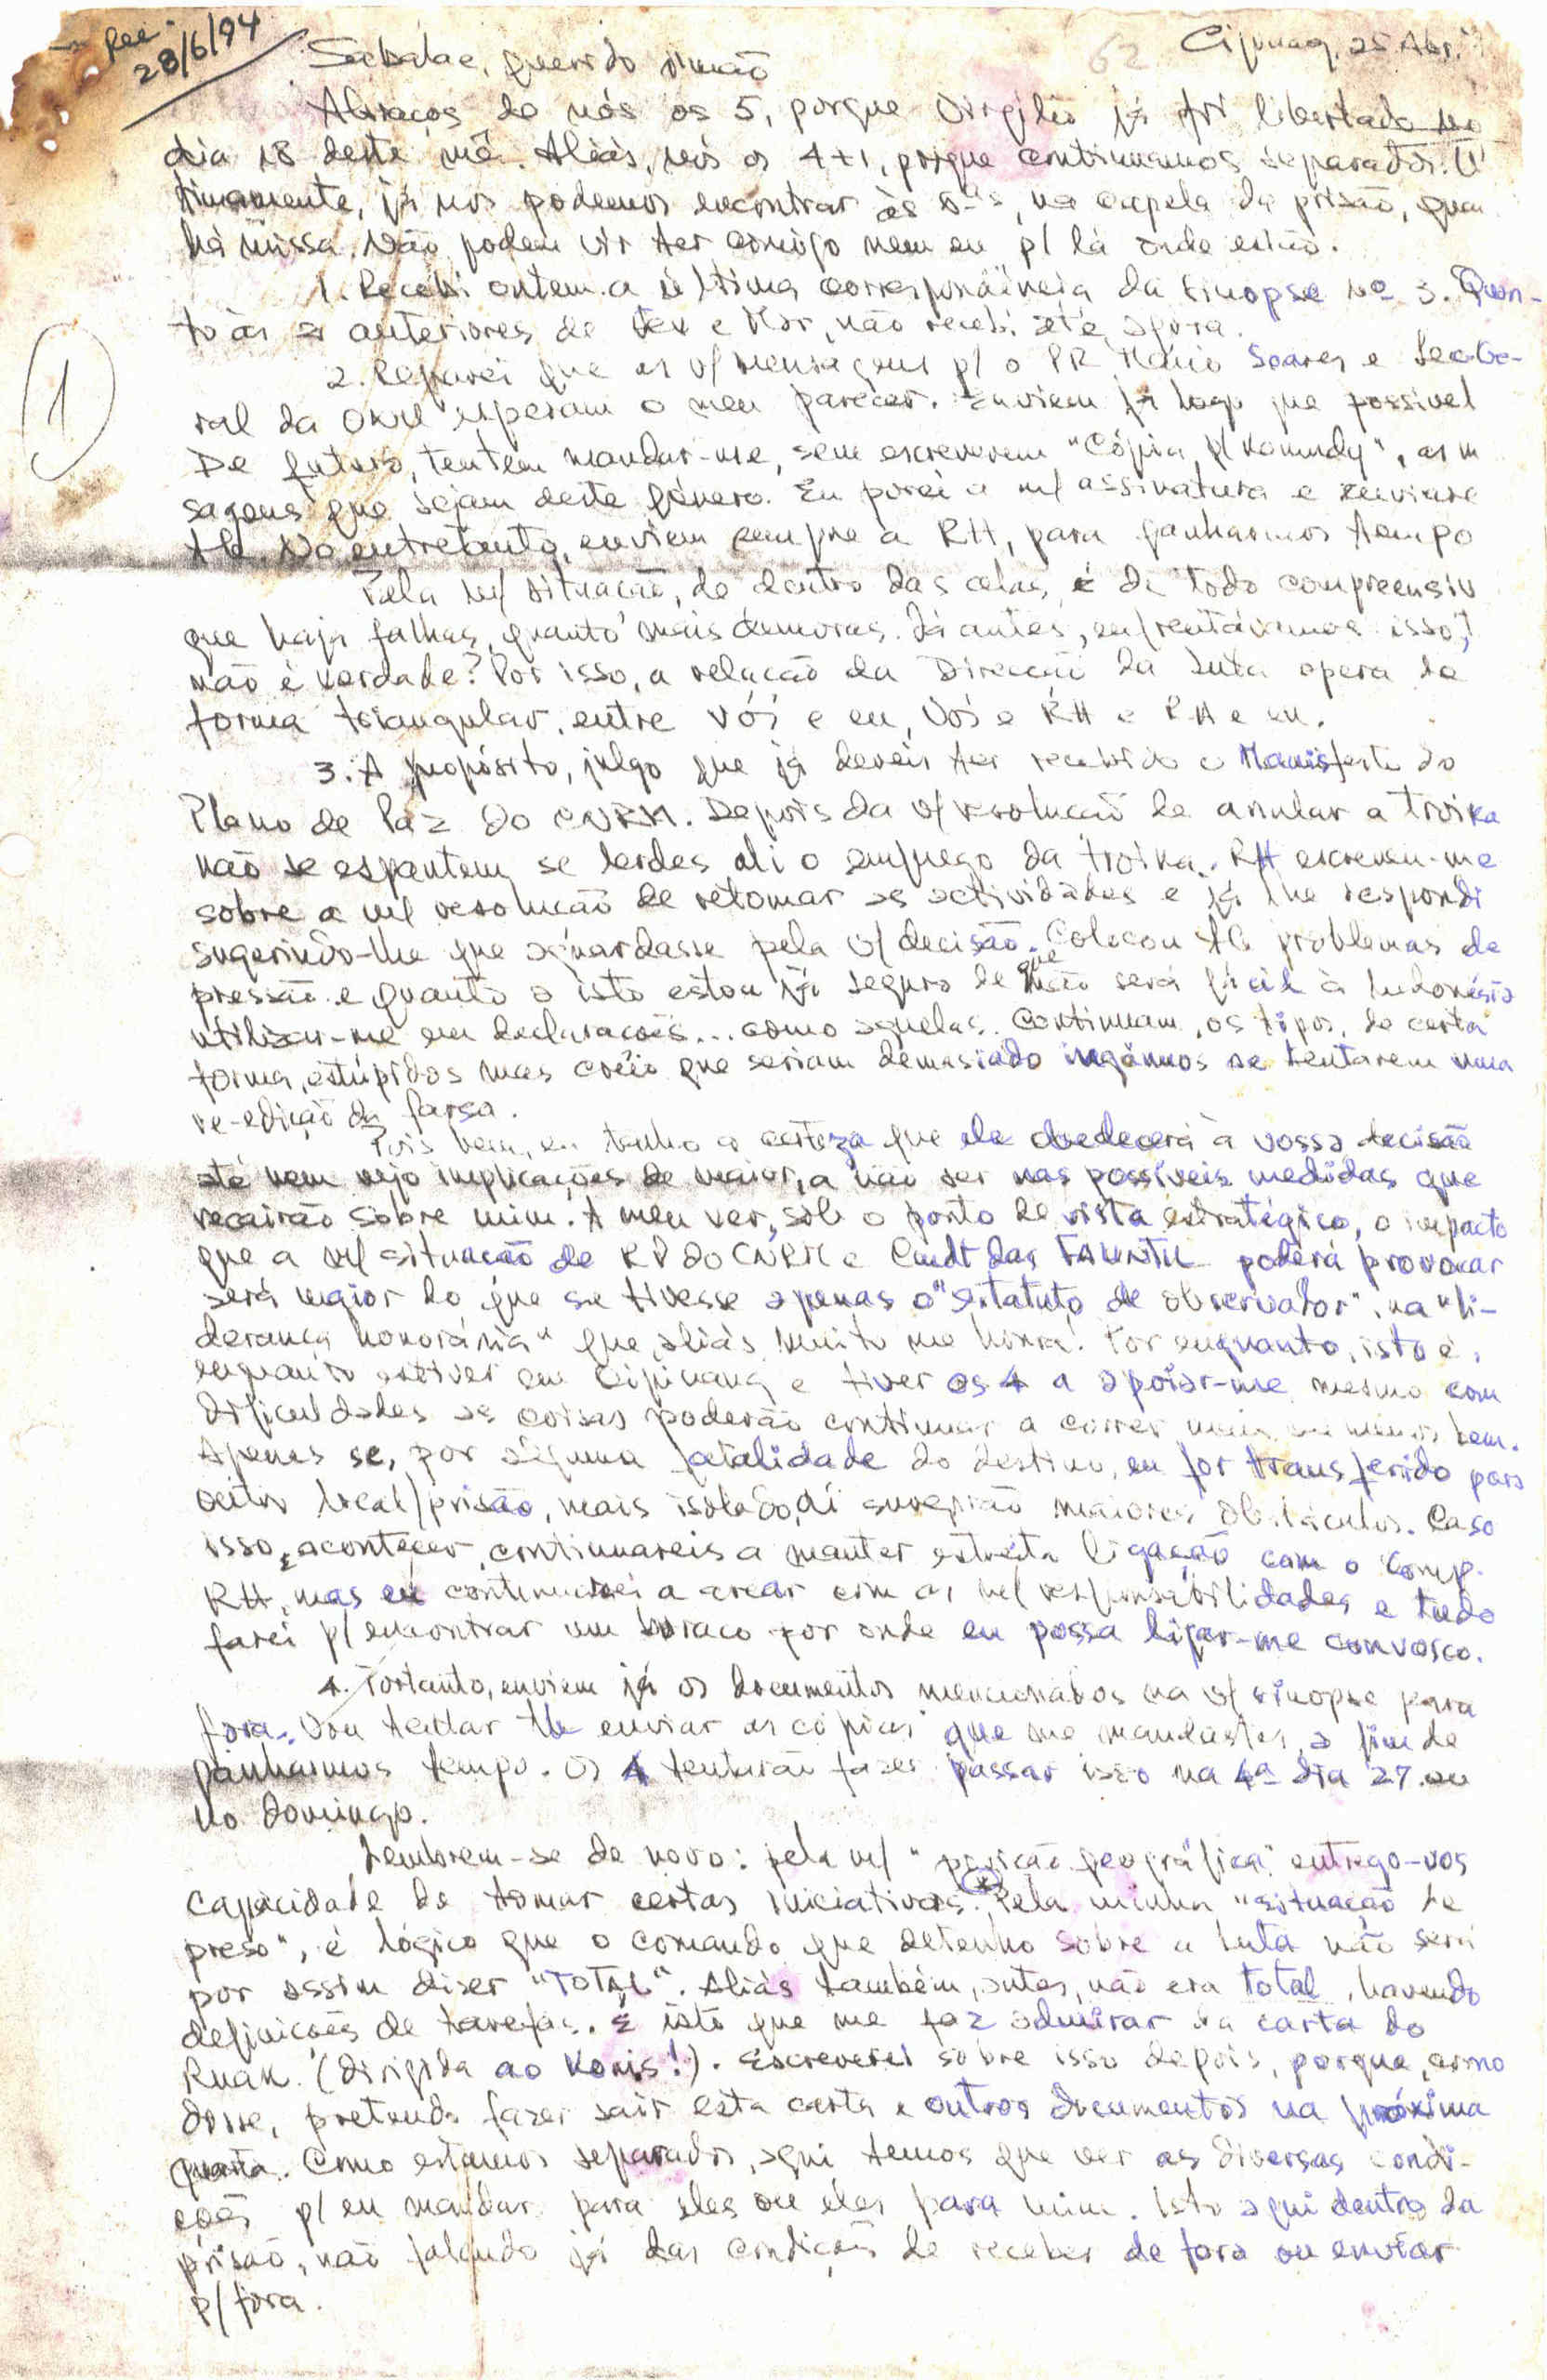 Rec. 28/6/94
Cipinang, 25 Abr.
Sabalae, querido irmão
Abraços de nós os 5, porque Virgílio já foi libertado no
dia 18 deste mês. Aliás, nós os 4+1, porque continuamos separados. Ul
timamente, já nos podemos encontrar às 6as, na capela da prisão, quan
há missa. Não podem vir ter comigo nem eu p/ lá onde estão.
1. Recebi ontem a última correspondência da sinopse nº 3. Quan-
to às anteriores de Fev e Mar, não recebi até agora.
2. Reparei que as v/ mensagens p/ o PR Mário Soares e Sec-Ge-
ral da ONU esperam o meu parecer. Enviem já logo que possível
De futuro, tentem mandar-me, sem escreverem "Cópia p/ Komndy", as m
sagens que sejam deste género. Eu porei a m/ assinatura e reenviare
tb. No entretanto, enviem sempre a RH, para ganharmos tempo
Pela m/ situação, de dentro das celas, é de todo compreensiv
que haja falhas, quanto mais demoras. Já antes, enfrentávamos isso,
não é verdade? Por isso, a relação da Direcção da Luta opera de
forma triangular, entre vós e eu, Vós e RH e RH e eu.
3. A propósito, julgo que já deveis ter recebido o Manifesto do
Plano de Paz do CNRM. Depois da v/ resolução de anular a troika
não se espantem se lerdes ali o emprego da troika. RH escreveu-me
sobre a m/ resolução de retomar as actividades e já lhe respondi
sugerindo-lhe que aguardasse pela v/ decisão. Colocou tb problemas de
pressão e quanto a isto estou já seguro de que não será fácil à Indonésia
utilizar-me em declarações... como aquelas. Continuam, os tipos, de certa
forma, estúpidos mas creio que seriam demasiado ingénuos se tentarem uma
re-edição da farsa.
Pois bem, eu tenho a certeza que ele obedecerá à vossa decisão
até nem vejo implicações de maior, a não ser nas possíveis medidas que
recairão sobre mim. A meu ver, sob o ponto de vista estratégico, o impacto
que a m/ situação de RP do CNRM e Cmdt das FALINTIL poderá provocar
será maior do que se tivesse apenas o "estatuto de observador", na "li-
derança honorária" que, aliás, muito me honra! Por enquanto, isto é,
enquanto estiver em Cipinang e tiver os 4 a apoiar-me mesmo com
dificuldades as coisas poderão continuar a correr mais ou menos bem.
Apenas se, por alguma fatalidade do destino, eu for transferido para
outro local/prisão, mais isolado, aí surgirão maiores obstáculos. Caso
isso acontecer, continuareis a manter estreita ligação com o comp.
RH, mas eu continuarei a arcar com as m/ responsabilidades e tudo
farei p/ encontrar um buraco por onde eu possa ligar-me convosco.
4. Portanto, enviem já os documentos mencionados na v/ sinopse para
fora. Vou tentar tb enviar as cópias que me mandastes, a fim de
ganharmos tempo. Os 4 tentarão fazer passar isso na 4ª dia 27 ou
no domingo.
Lembrem-se de novo: pela m/ "posição geográfica" entrego-vos
capacidade de tomar certas iniciativas. Pela minha "situação de
preso", é lógico que o comando que detenho sobre a luta não será
por assim dizer "TOTAL". Aliás também, antes, não era total, havendo
definições de tarefas. É isto que me faz admirar da carta do
Ruak. (dirigida ao Konis!). Escreverei sobre isso depois, porque, como
disse, pretendo fazer sair esta carta e outros documentos na próxima
quarta. Como estamos separados, aqui temos que ver as diversas condi-
ções p/ eu mandar para eles ou eles para mim. Isto aqui dentro da
prisão, não falando já das condições de receber de fora ou enviar
p/ fora.
1
62